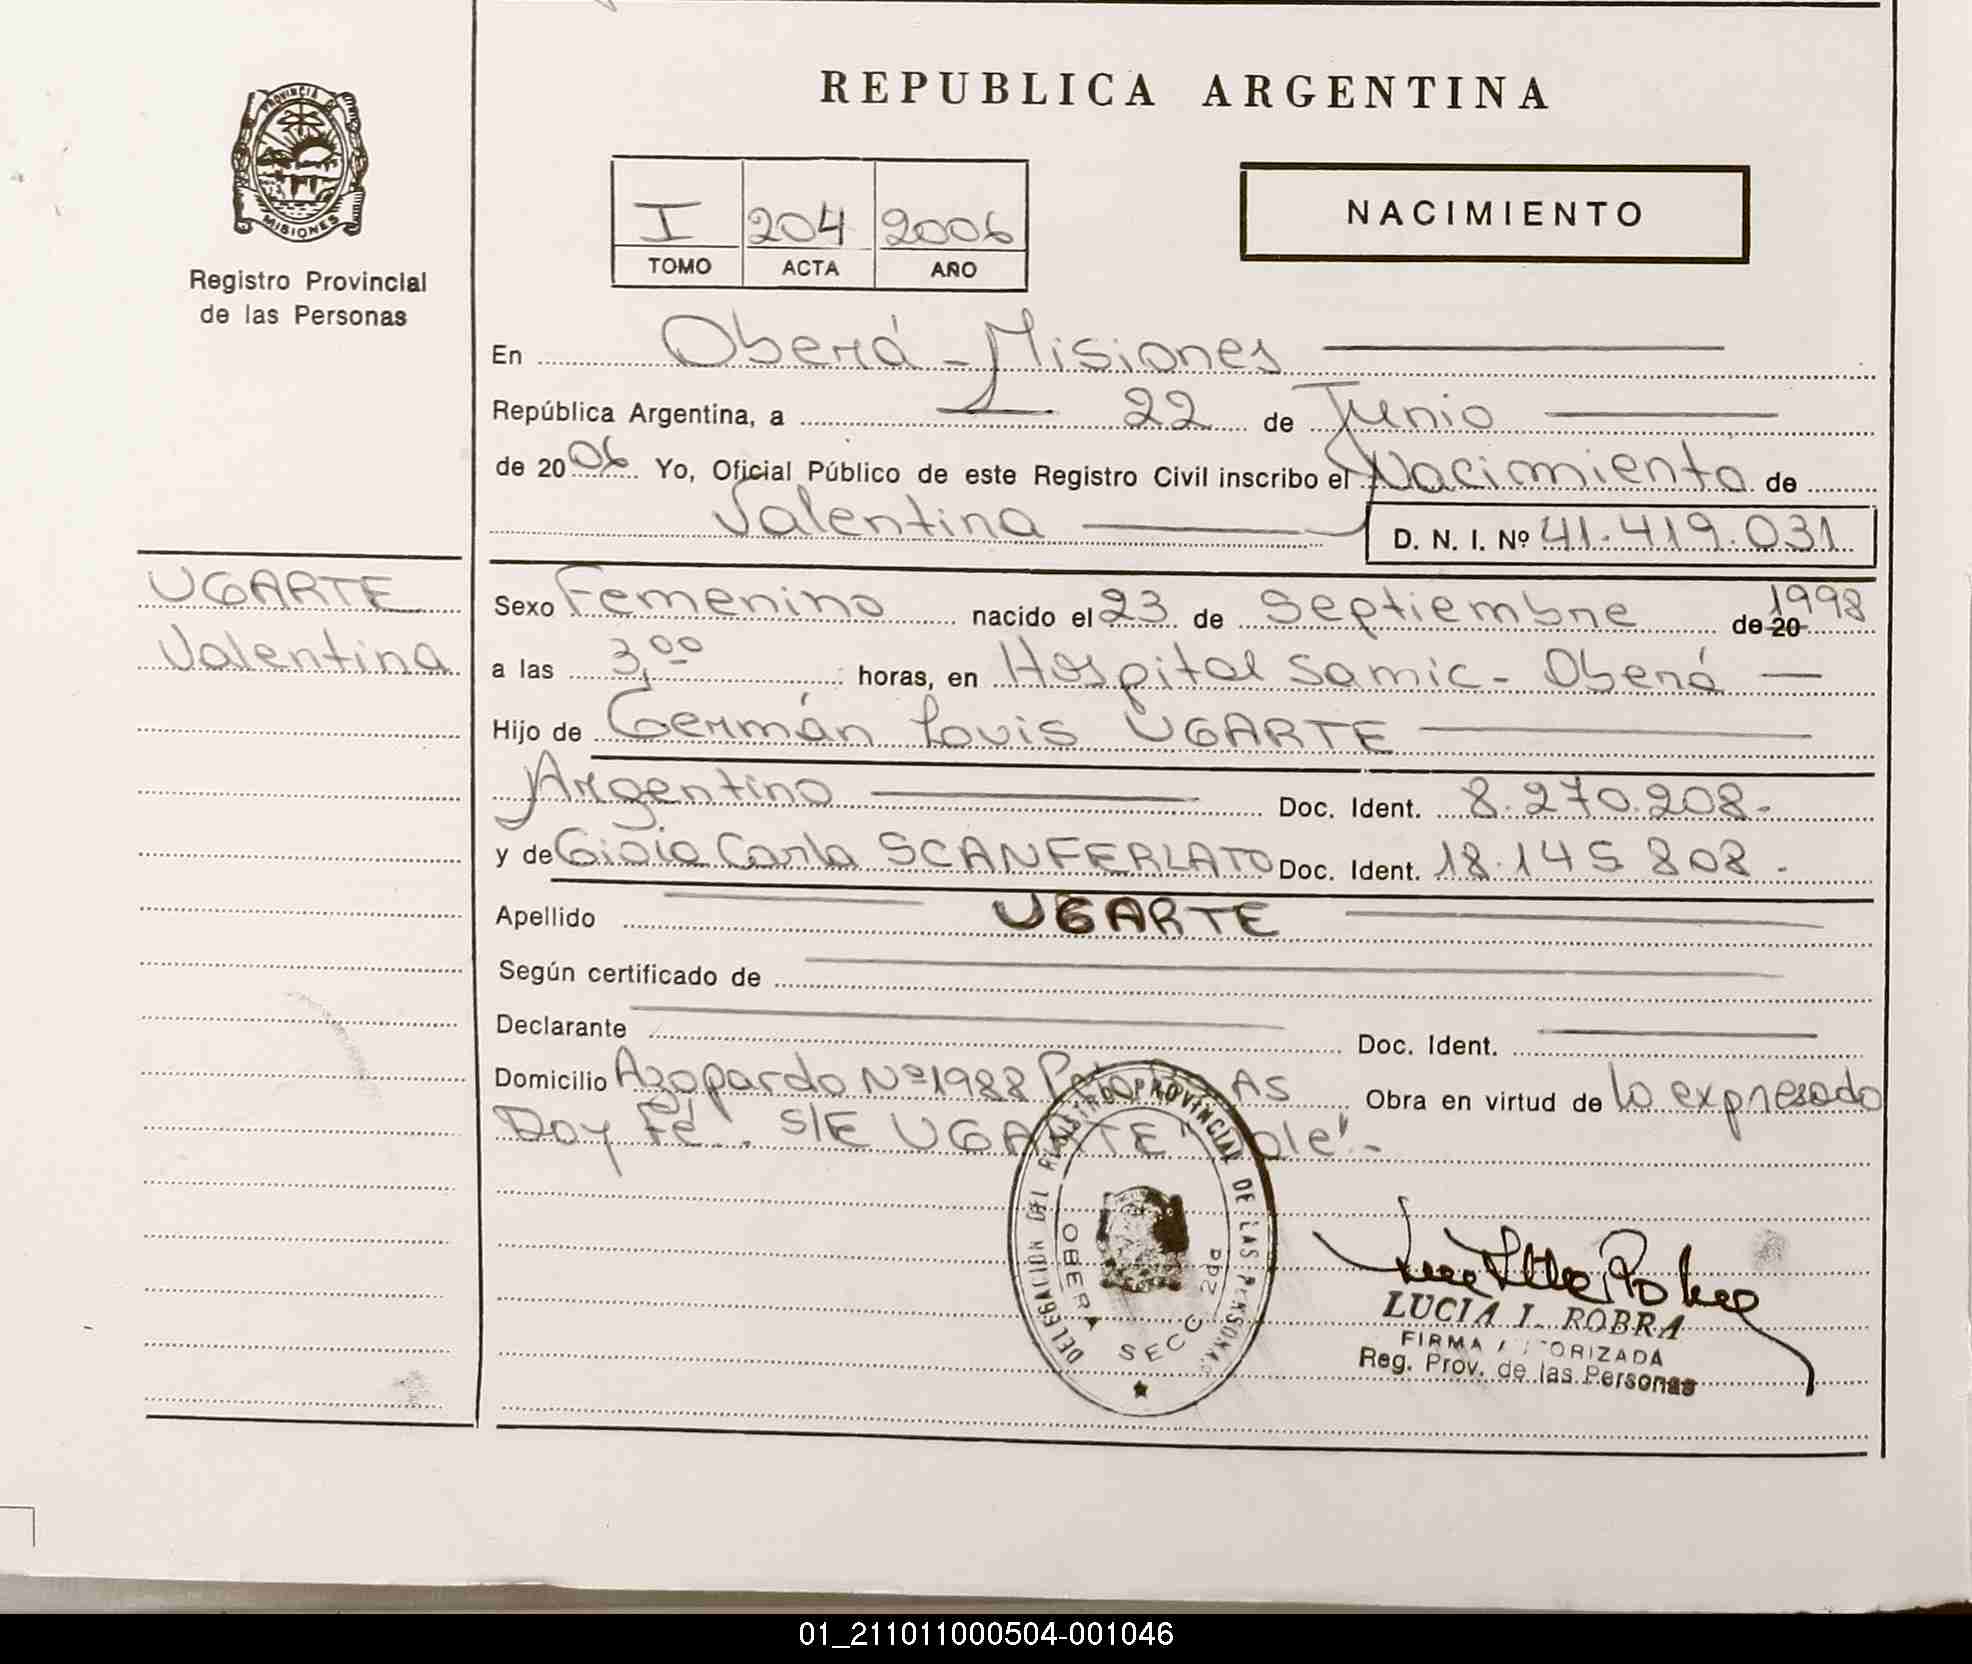 REPUBLICA ARGENTINA
PROVINCIA DE
MISIONES
Registro Provincial
de las Personas
I 204 2006
TOMO ACTA AÑO
NACIMIENTO
En Oberá - Misiones
República Argentina, a 22 de Junio
de 2006 Yo, Oficial Público de este Registro Civil inscribo el Nacimiento de
Valentina D. N. I. Nº 41.419.031
UGARTE
Valentina
Sexo Femenino nacido el 23 de Septiembre de 20 1998
a las 3,00 horas, en Hospital Samic - Oberá
Hijo de Germán Louis UGARTE
Argentino Doc. Ident. 8.270.208.-
y de Gioia Carla SCANFERLATO Doc. Ident. 18.145 808.-
Apellido UGARTE
Según certificado de
Declarante Doc. Ident.
Domicilio Azopardo Nº 1988 AS Obra en virtud de lo expresado
Doy Fé. S/E UGARTE "Vale".-
DELEGACION DEL REGISTRO PROVINCIAL DE LAS PERSONAS
OBERA SECC 2da
LUCIA I. ROBRA
FIRMA AUTORIZADA
Reg. Prov. de las Personas
01_211011000504-001046